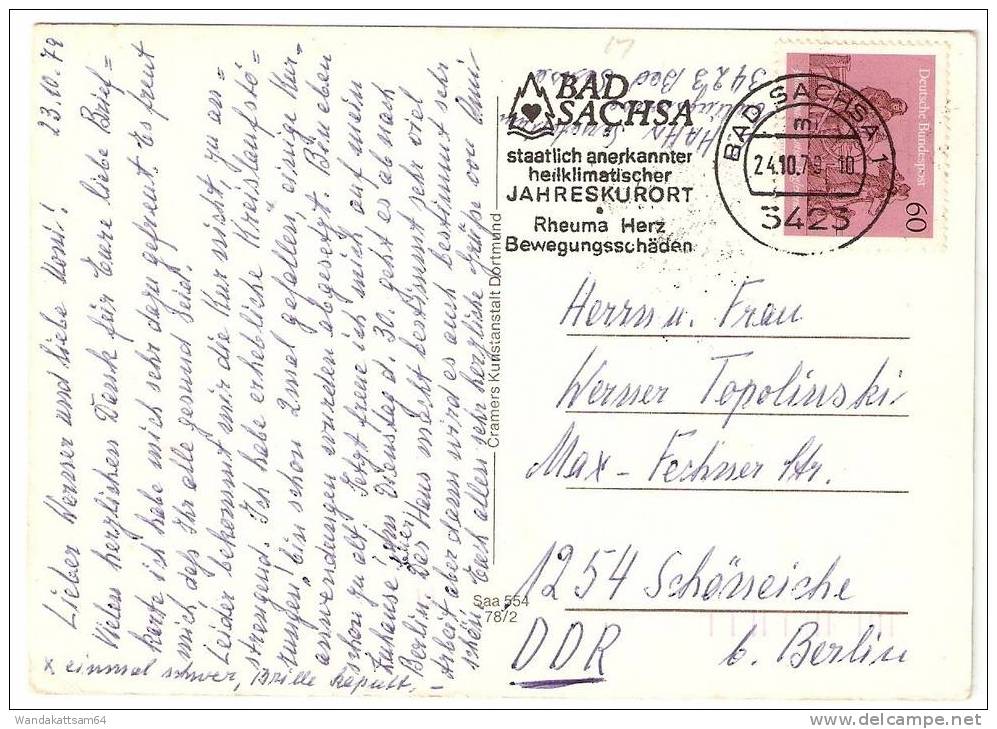 23.10.79
Lieber Werner und liebe Moni!
Vielen herzlichen Dank für Eure liebe Brief=
karte ich habe mich sehr dazu gefreut. Es freut
mich das Ihr alle gesund seid.
Leider bekommt mir die Kur nicht, zu an=
strengend. Ich habe erhebliche Kreislaufstö=
rungen, bin schon 2 mal gefallen, einige Kur-
anwendungen wurden abgesetzt. Bin eben
schon zu alt. Jetzt freue ich mich auf mein
Zuhause, am Dienstag d. 30. geht es ab nach
Berlin. Das Haus macht bestimmt sehr viel
Arbeit aber dann wird es auch bestimmt sehr
schön. Euch allen sehr herzliche Grüße von
x einmal schwer, Brille kaputt. -
Saa 554
78/2
Cramers Kunstanstalt Dortmund
3423 Bad
HAHN
BAD
SACHSA
staatlich anerkannter
heilklimatischer
JAHRESKURORT
Rheuma Herz
Bewegungsschäden
BAD SACHSA 1
mi
24.10.79-10
3423
Deutsche Bundespost
60
Herrn u. Frau
Werner Topolinski
Max-Fechner Str.
1254 Schöneiche
DDR b. Berlin
Wandakattsam64
delcampe.net